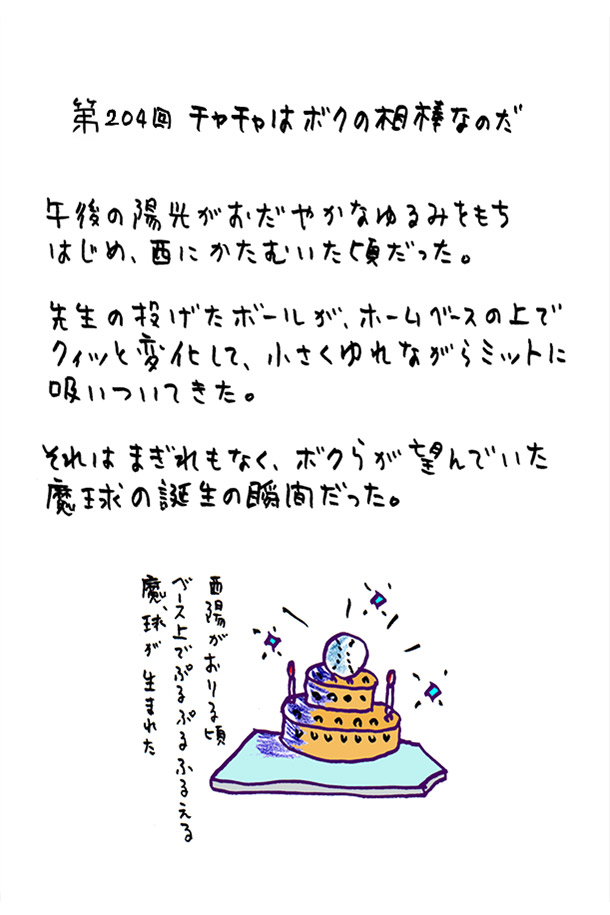 第204回 チャチャはボクの相棒なのだ
午後の陽光がおだやかなゆるみをもち
はじめ、西にかたむいた頃だった。
先生の投げたボールが、ホームベースの上で
クィッと変化して、小さくゆれながらミットに
吸いついてきた。
それはまぎれもなく、ボクらが望んでいた
魔球の誕生の瞬間だった。
西陽がおりる頃
ベース上でぷるぷるふるえる
魔球が生まれた